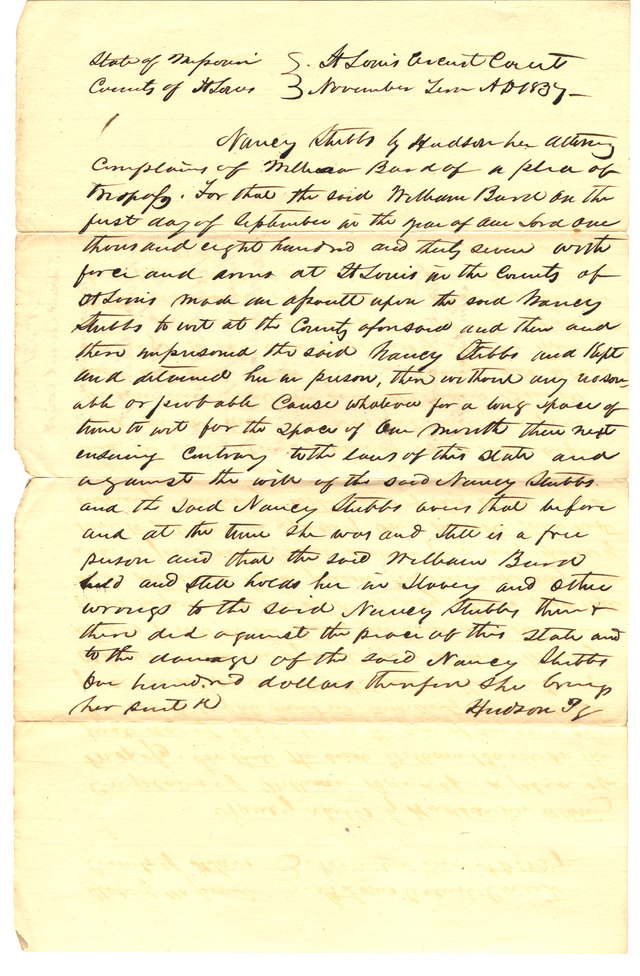 State of Missouri } St Louis Circuit Court
County of St Louis } November Term A D 1837 —
Nancy Stubbs by Hudson her attorney
Complains of William Burd of a plea of
trespass. For that the said William Burd on the
first day of September in the year of our Lord one
thousand eight hundred and thirty seven with
force and arms at St Louis in the County of
St Louis made an assault upon the said Nancy
Stubbs to wit at the County aforesaid and then and
there imprisoned the said Nancy Stubbs and kept
and detained her in prison, there without any reason-
able or probable Cause whatever for a long space of
time to wit for the space of One month then next
ensuing Contrary to the laws of this state and
against the will of the said Nancy Stubbs.
and the said Nancy Stubbs avers that before
and at the time she was and still is a free
person and that the said William Burd
held and still holds her in Slavery and other
wrongs to the said Nancy Stubbs then &
there did against the peace of this state and
to the damage of the said Nancy Stubbs
One hundred dollars therefore she brings
her suit &
Hudson